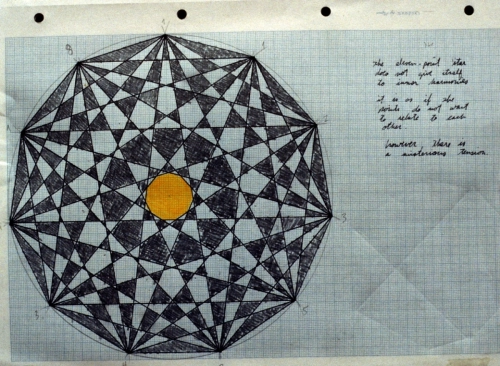 the eleven-point star
does not give itself
to inner harmonies
it is as if the
points do not want
to relate to each
other.
however, there is
a mysterious tension.